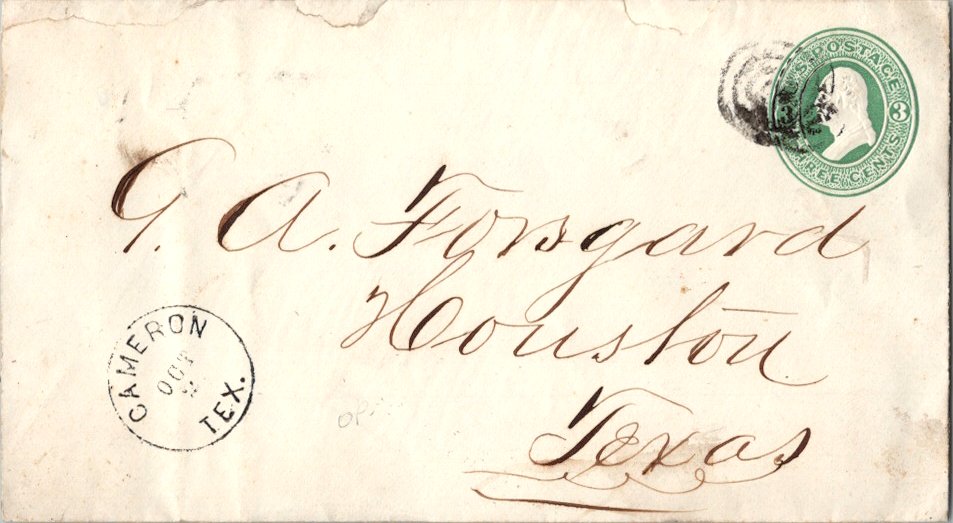 U.S. POSTAGE
3 3
THREE CENTS
G. A. Forsgard
Houston
Texas
CAMERON
OCT
TEX.